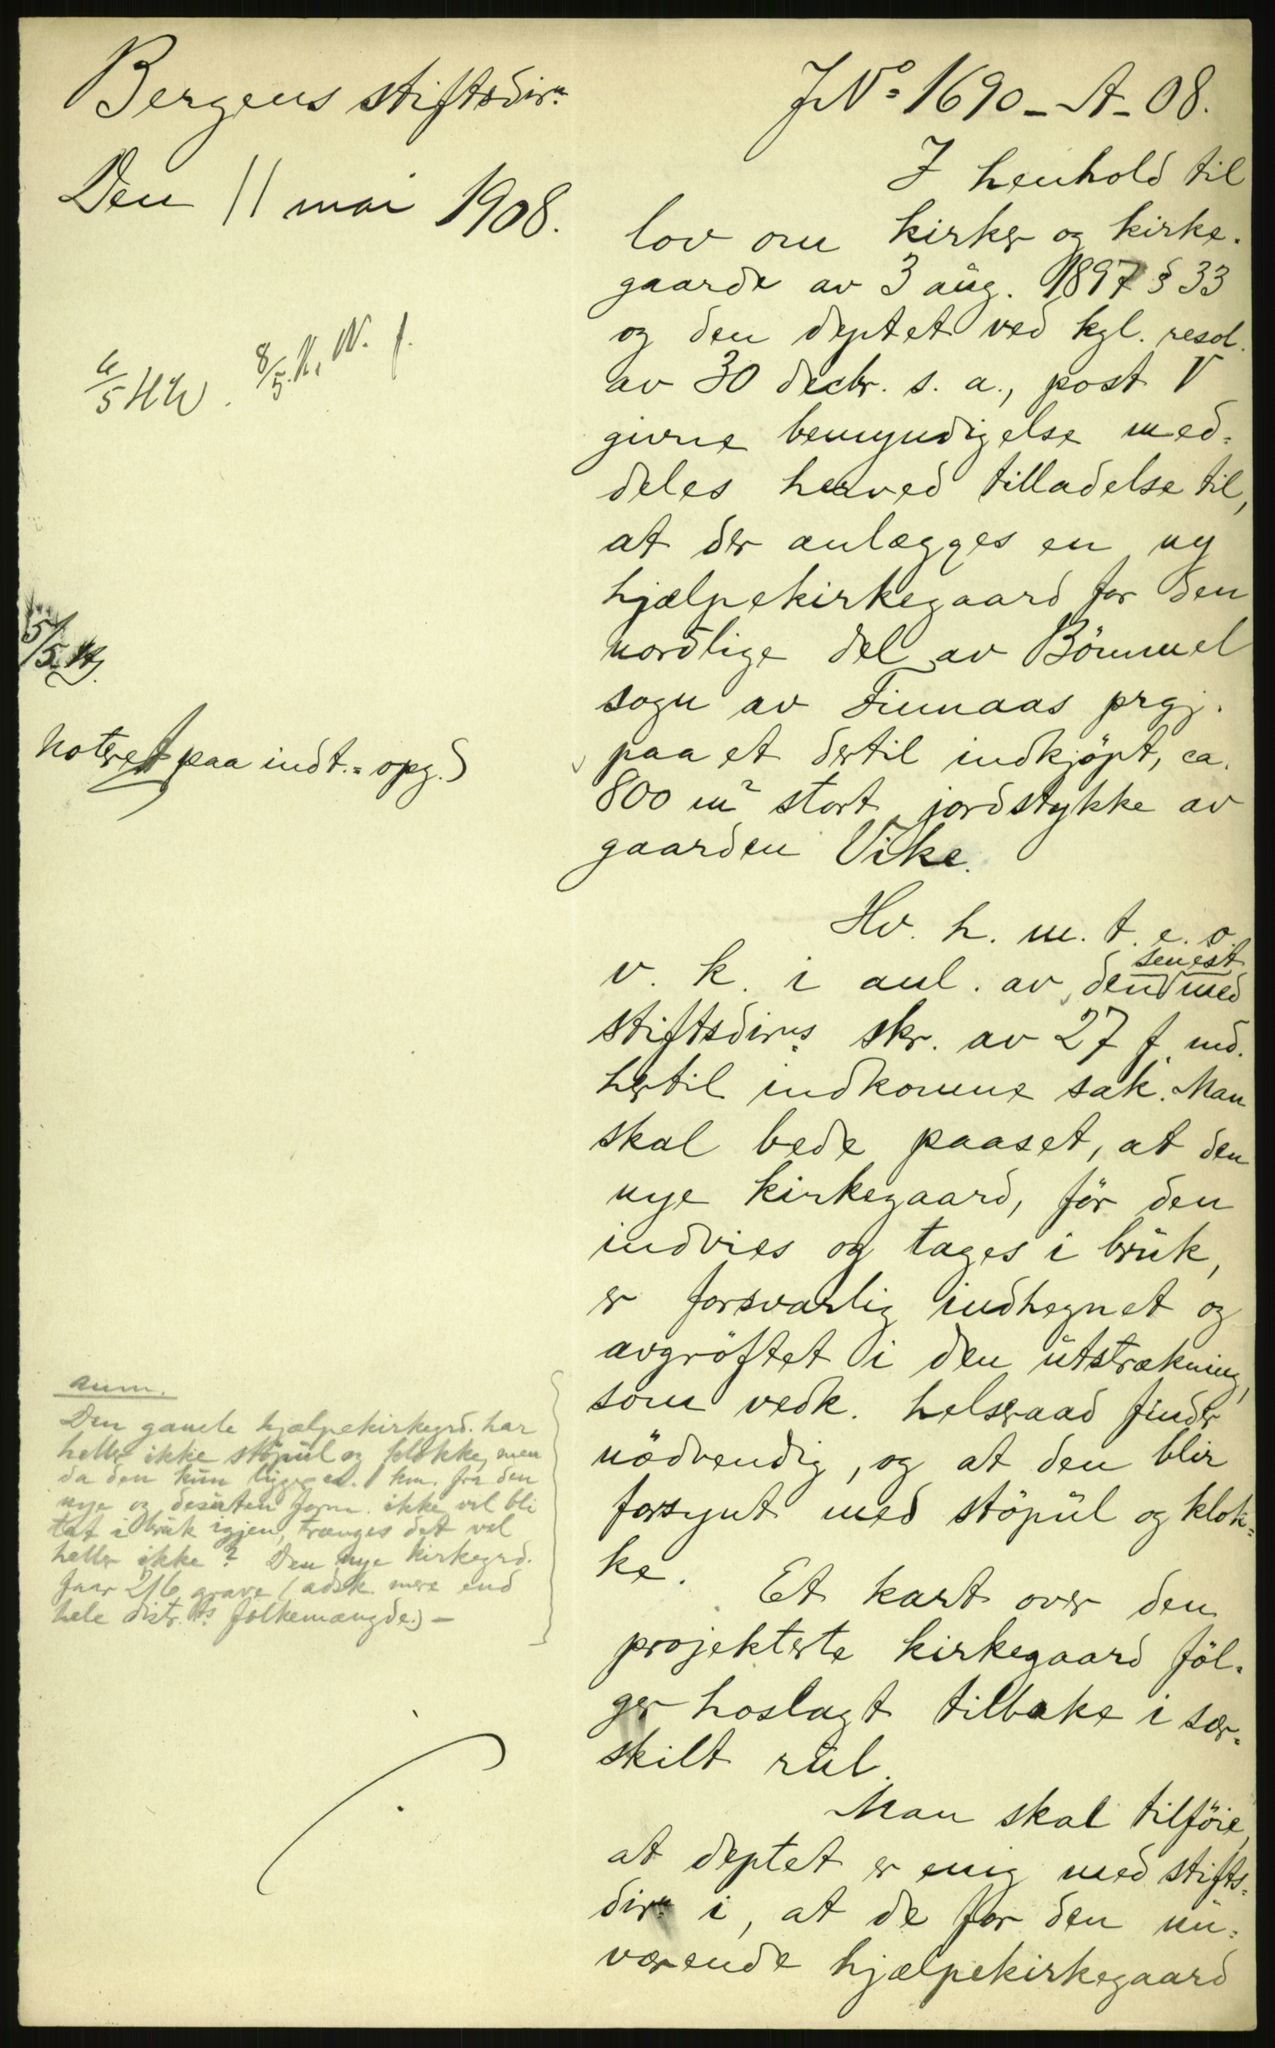 Bergens stiftsdirn
Den 11 mai 1908.
6/5 HW. 8/5.
5/5
Noteret paa indt.=opg.
JNo 1690-A-08.
I henhold til
lov om kirker og kirke-
gaarde av 3 aug. 1897 § 33
og den deptet ved kgl. resol.
av 30 decbr. s. a., post V
givne bemyndigelse med-
deles herved tilladelse til,
at der anlægges en ny
hjælpekirkegaard for den
nordlige del av Bömmel
sogn av Finnaas prgj.
paa et dertil indkjöpt, ca.
800 m² stort jordstykke av
gaarden Vike.
Hv. h. m. t. e. o.
v. k. i anl. av den senest med
stiftsdirns skr. av 27 f. md.
hertil indkomne sak. Man
skal bede paaset, at den
nye kirkegaard, för den
indvies og tages i bruk,
er forsvarlig indhegnet og
avgröftet i den utstrækning,
som vedk. helseraad finder
nödvendig, og at den blir
forsynt med stöpul og klok-
ke.
Et kart over den
projekterte kirkegaard föl-
ger hoslagt tilbake i sær-
skilt rul.
Man skal tilföie,
at deptet er enig med stifts-
dirn i, at de for den nu-
værende hjælpekirkegaard
anm.
Den gamle hjælpekirkegrd. har
heller ikke stöpul og klokke, men
da den kun ligger 1 km. fra den
nye og desuten form. ikke vil bli
tat i bruk igjen, trænges det vel
heller ikke? Den nye kirkegrd.
faar 216 grave (adsk. mere end
hele distr.ts folkemængde.) -